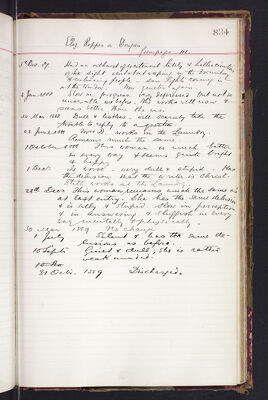 834
Eliz. Hopper or Draper
from page 111
1st Dec. 87. Had an outburst of excitement lately &
of her
& at the window. Now quieter again
4 Jan. 1888 Slow in progress, very depressed but not so
miserable as before. She works still now &
seems better than she was.
30 Mar 1888 Dull & listless - will scarcely take the
trouble to reply to a question
22 June 1888 Mrs D. works in the Laundry.
Remains much the same
1 October 1888 This woman is much better
in every way & seems quite bright
& happy
1 Dec. Is worse - very dull & stupid - Has
the delusion that the writer is Christ.
Still works at the Laundry
28th Dec This woman remains much the same as
at last entry. She has the same delusion
& is silly & stupid. Slow in perception
& in answering & sluggish in every
way mentally & physically.
30 Mar 1889 No change.
1 July Silent & has the same de-
lusions as before.
10 Septr Quiet & dull; she is rather
weak minded.
31 Octr. 1889 Discharged.